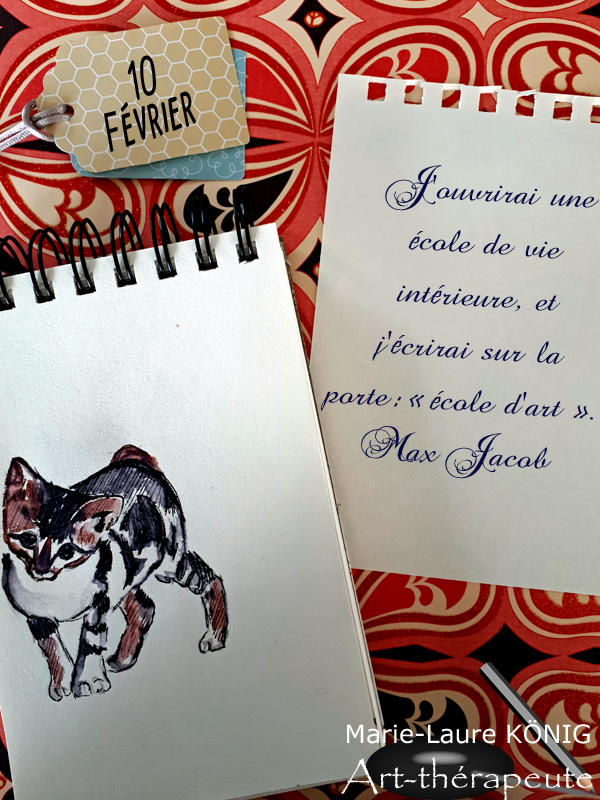 10
FÉVRIER
J'ouvrirai une
école de vie
intérieure, et
j'écrirai sur la
porte : « école d'art ».
Max Jacob
Marie-Laure KÖNIG
Art-thérapeute